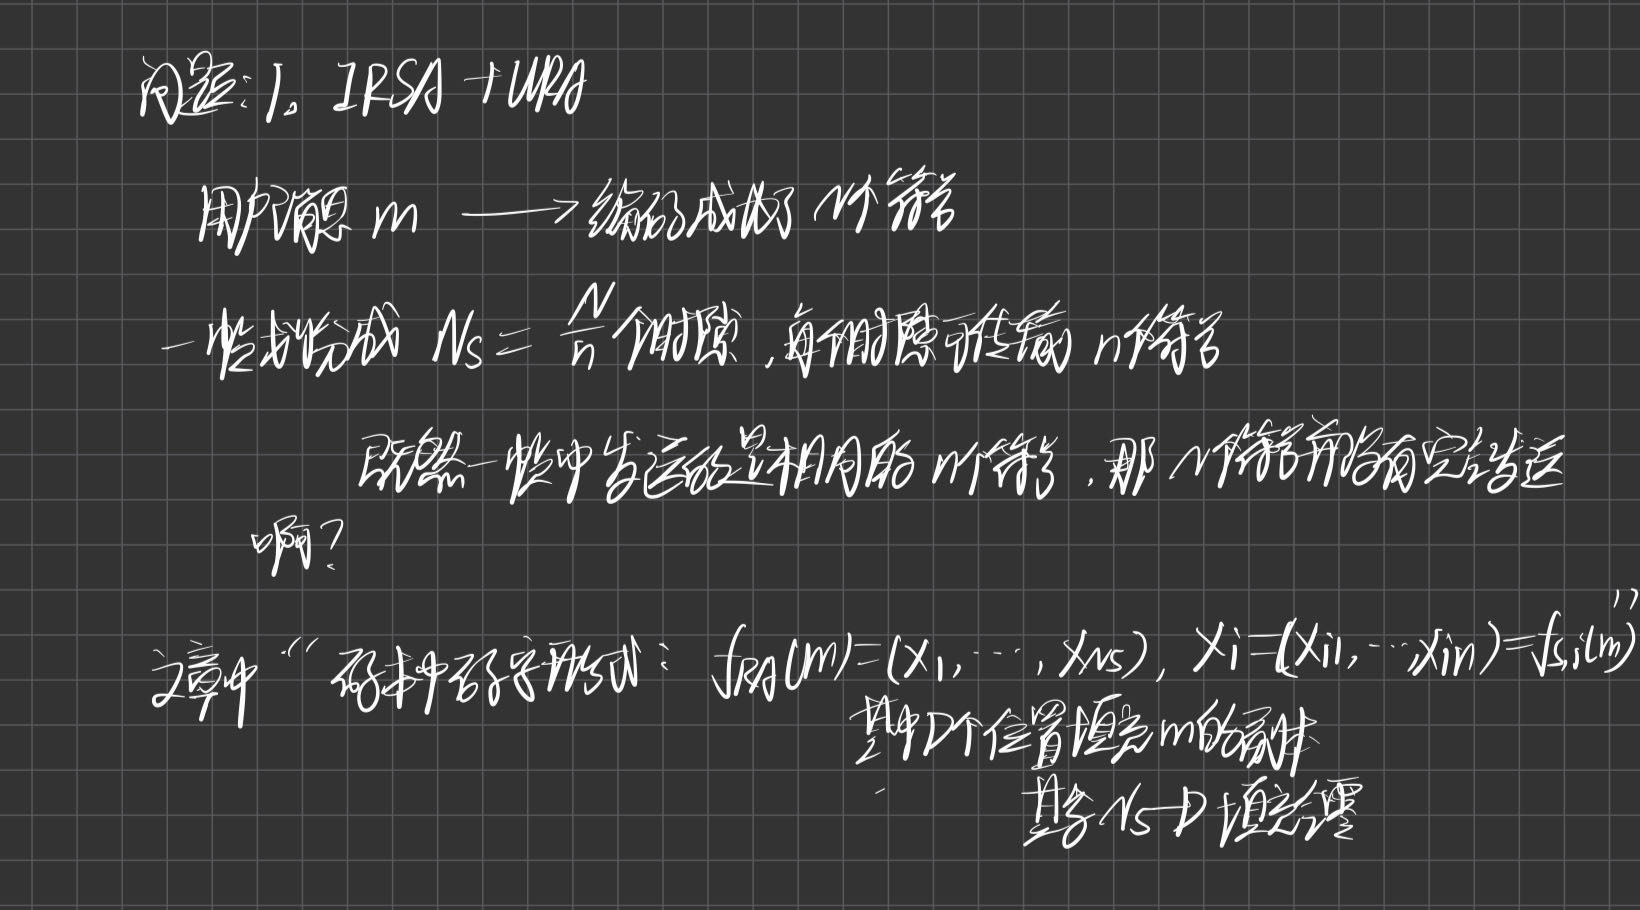 问题：1。IRSA+URA
用户消息 m → 编码成为了 N个符号
一帧划分成 Ns = N/n 个时隙，每个时隙可传输 n个符号
既然一帧中发送的是相同的 n个符号，那 N个符号并没有完全发送
啊？
文章中 “码本中码字形式： fRA(m)=(X1,⋯,XNs), Xi=(Xi1,⋯,Xin)=fs,i(m)”
其中D个位置填充m的副本
其余 Ns-D 填充全零